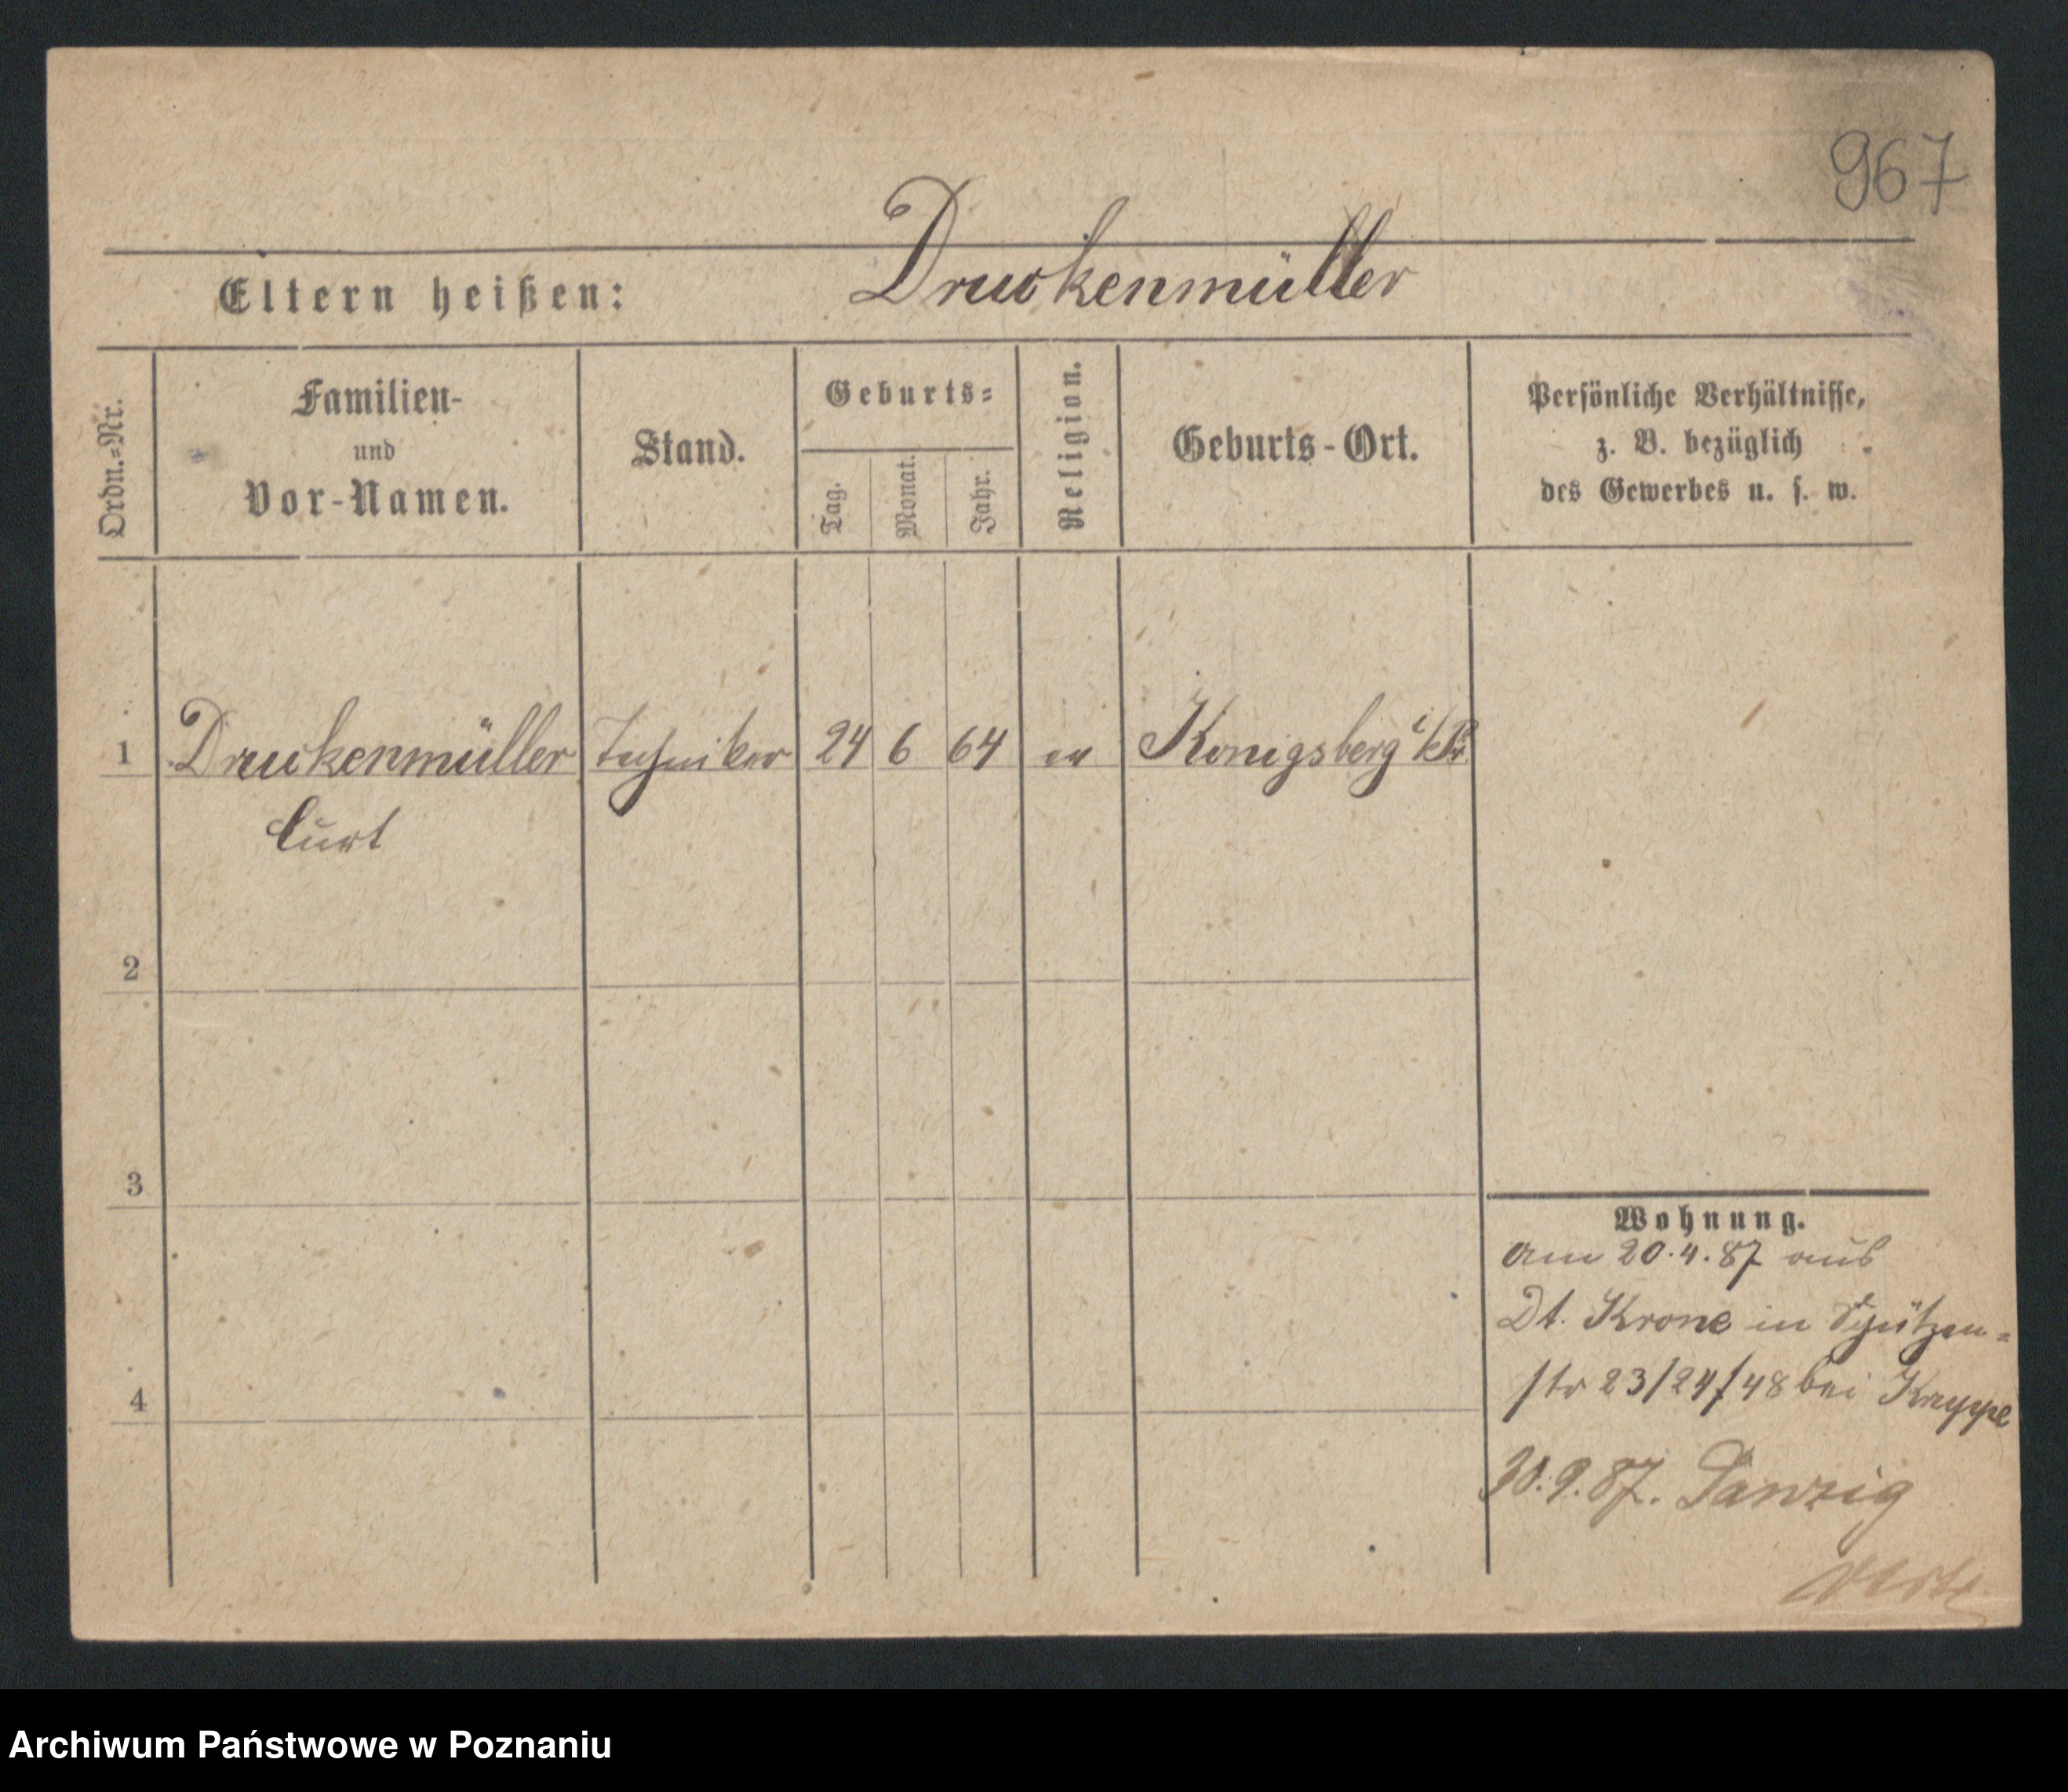 967
Eltern heißen: Druckenmüller
Ordn.-Nr.
Familien-
und
Vor-Namen.
Stand.
Geburts-
Tag.
Monat.
Jahr.
Religion.
Geburts-Ort.
Persönliche Verhältnisse,
z. B. bezüglich
des Gewerbes u. s. w.
1 Druckenmüller Techniker 24 6 64 ev Königsberg i/Pr.
Curt
2
3
4
Wohnung.
am 20.4.87 aus
Dt. Krone in Schützen-
str 23/24/48 bei
30.9.87. Danzig
Archiwum Państwowe w Poznaniu